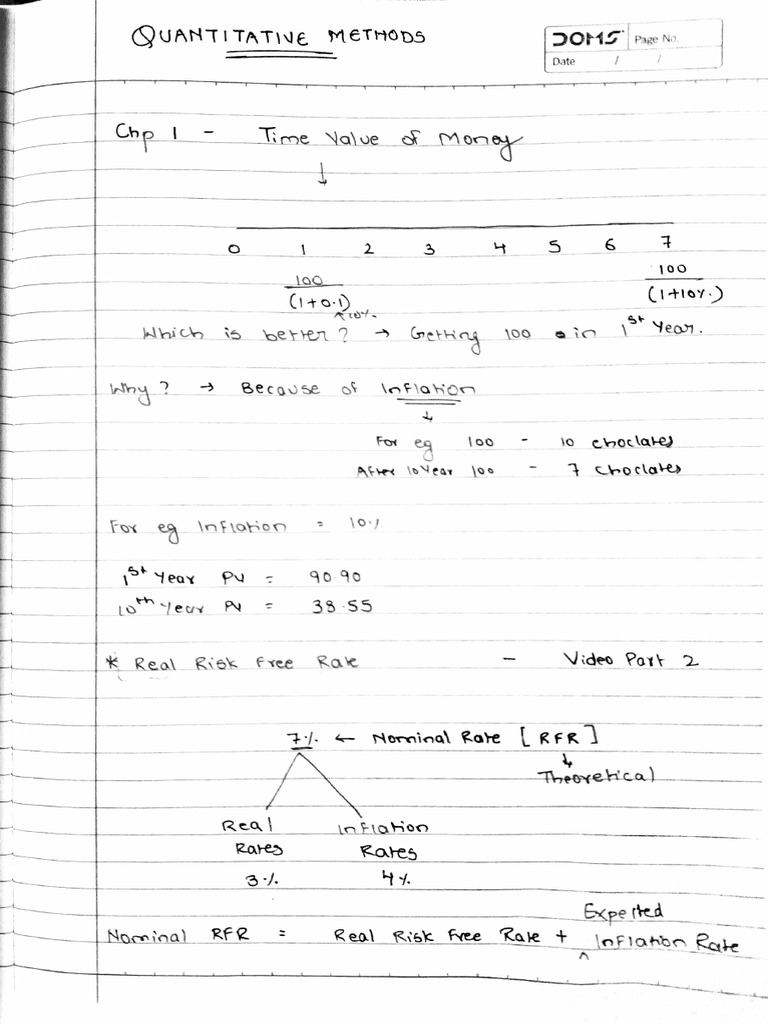 QUANTITATIVE METHODS
DOMS Page No.
Date / /
Chp 1 - Time Value of Money
↓
0 1 2 3 4 5 6 7
100 100
(1+0.1) (1+10%)
↑10%
Which is better? → Getting 100 in 1st Year.
Why? → Because of Inflation
↓
For eg 100 - 10 choclates
After 10 Year 100 - 7 choclates
For eg Inflation = 10%
1st Year PV = 90.90
10th Year PV = 38.55
* Real Risk Free Rate - Video Part 2
7% ← Nominal Rate [RFR]
↓
Theoretical
Real Inflation
Rates Rates
3% 4%
Expected
Nominal RFR = Real Risk Free Rate + ^ Inflation Rate